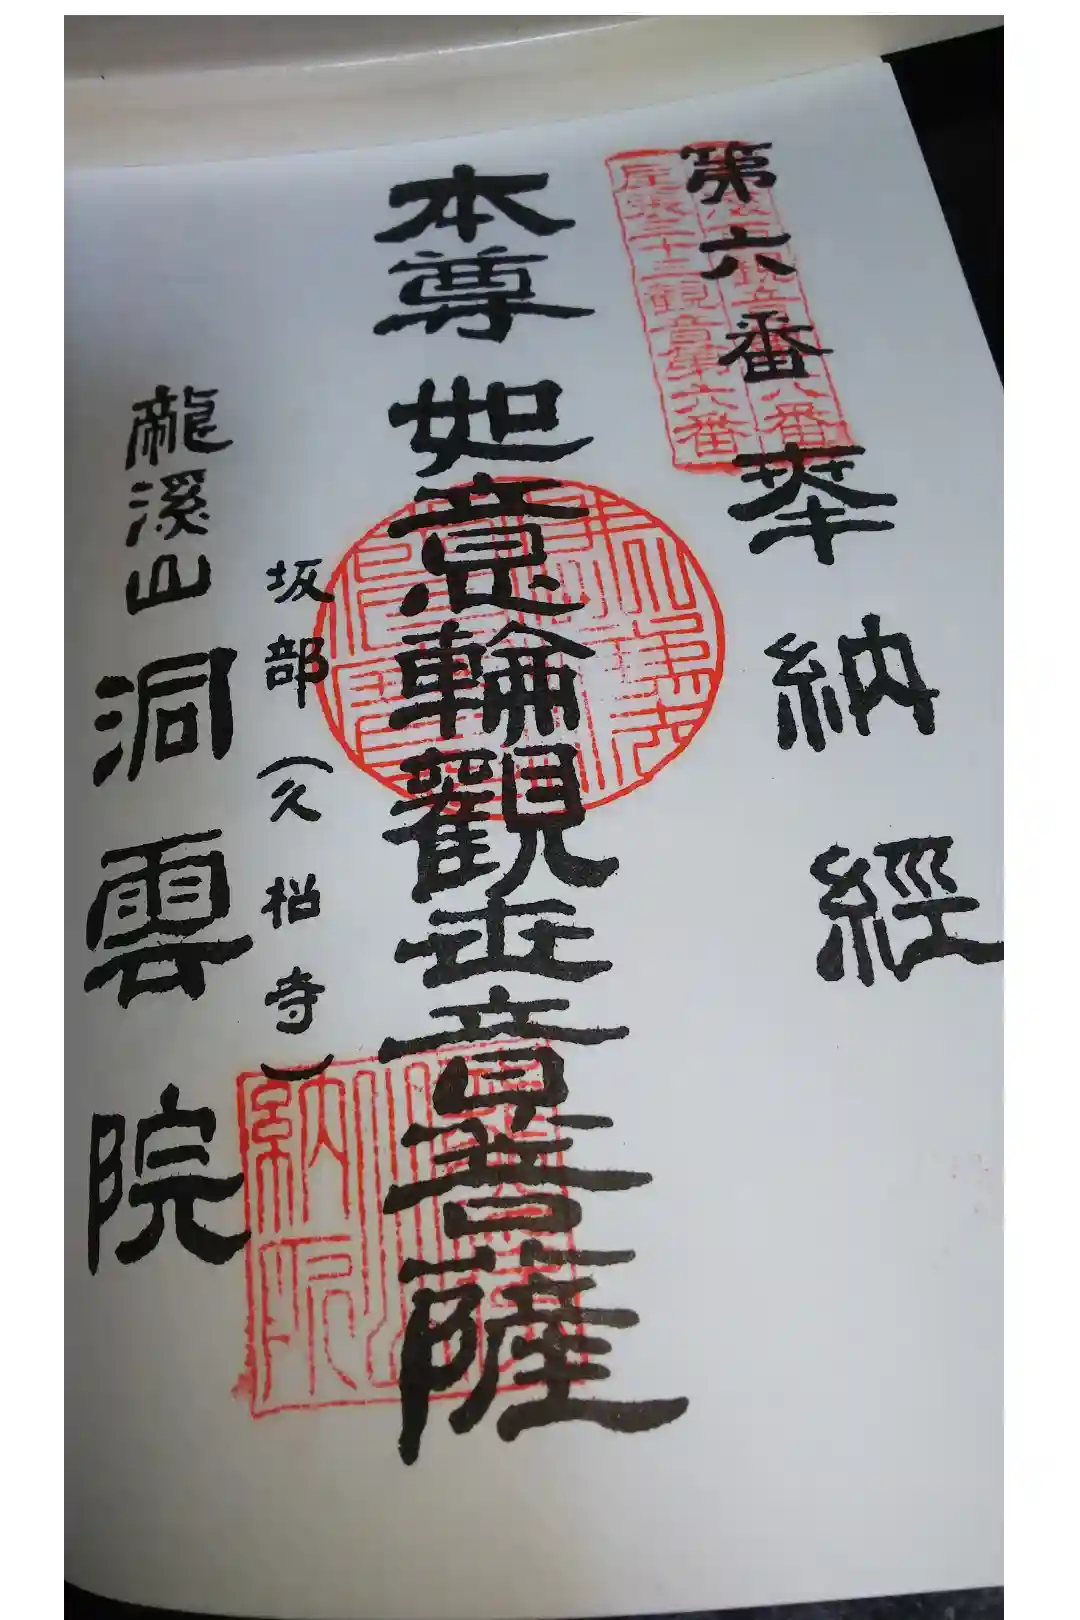 第六番
尾張三十三観音第六番
奉納経
本尊如意輪觀世音菩薩
坂部(久松寺)
龍溪山洞雲院